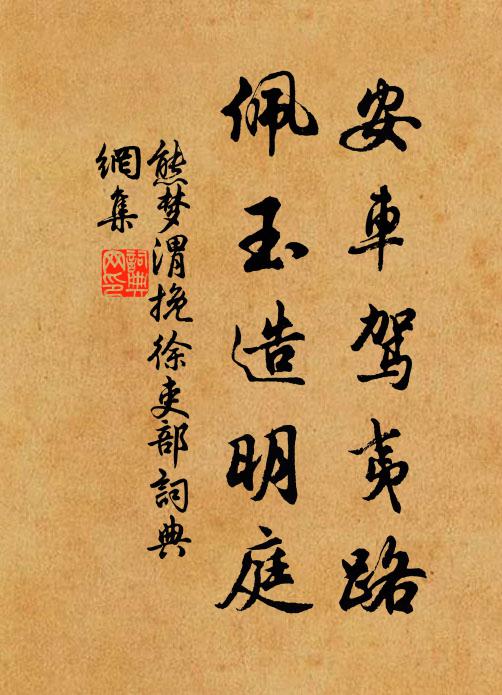 安車駕夷路
佩玉造明庭
熊梦渭挽徐吏部詞典
網集
詞典
网印